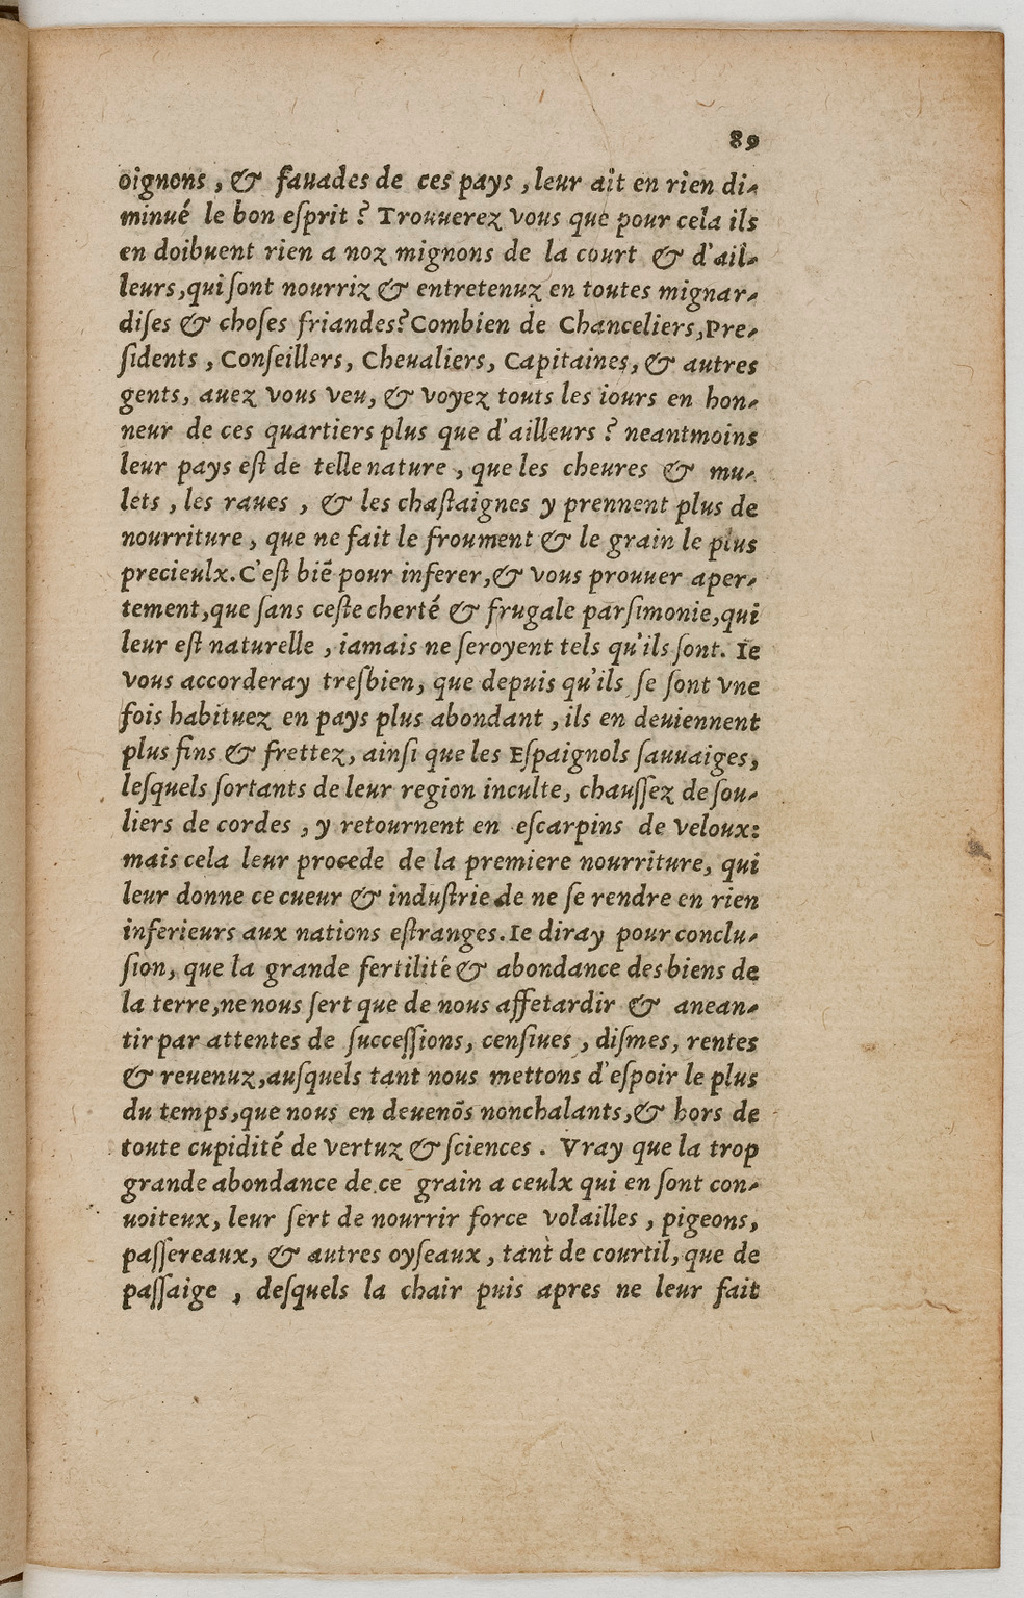 89
oignons, & fauades de ces pays, leur ait en rien di-
minué le bon eſprit? Trouuerez vous que pour cela ils
en doibuent rien a noz mignons de la court & d'ail-
leurs, qui ſont nourriz & entretenuz en toutes mignar-
diſes & choſes friandes? Combien de Chanceliers, Pre-
ſidents, Conſeillers, Cheualiers, Capitaines, & autres
gents, auez vous veu, & voyez touts les iours en hon-
neur de ces quartiers plus que d'ailleurs? neantmoins
leur pays eſt de telle nature, que les cheures & mu-
lets, les raues, & les chaſtaignes y prennent plus de
nourriture, que ne fait le froument & le grain le plus
precieulx. C'eſt biē pour inferer, & vous prouuer aper-
tement, que ſans ceſte cherté & frugale parſimonie, qui
leur eſt naturelle, iamais ne ſeroyent tels qu'ils ſont. Ie
vous accorderay treſbien, que depuis qu'ils ſe ſont vne
fois habituez en pays plus abondant, ils en deuiennent
plus fins & frettez, ainſi que les Eſpaignols ſauuaiges,
leſquels ſortants de leur region inculte, chauſſez de ſou-
liers de cordes, y retournent en eſcarpins de veloux:
mais cela leur procede de la premiere nourriture, qui
leur donne ce cueur & induſtrie de ne ſe rendre en rien
inferieurs aux nations eſtranges. Ie diray pour conclu-
ſion, que la grande fertilité & abondance des biens de
la terre, ne nous ſert que de nous affetardir & anean-
tir par attentes de ſucceſſions, cenſiues, diſmes, rentes
& reuenuz, auſquels tant nous mettons d'eſpoir le plus
du temps, que nous en deuenōs nonchalants, & hors de
toute cupidité de vertuz & ſciences. Vray que la trop
grande abondance de ce grain a ceulx qui en ſont con-
uoiteux, leur ſert de nourrir force volailles, pigeons,
paſſereaux, & autres oyſeaux, tant de courtil, que de
paſſaige, deſquels la chair puis apres ne leur fait